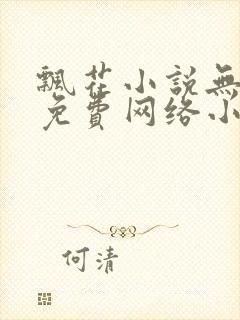 飄花小説無
免費网络小
何清